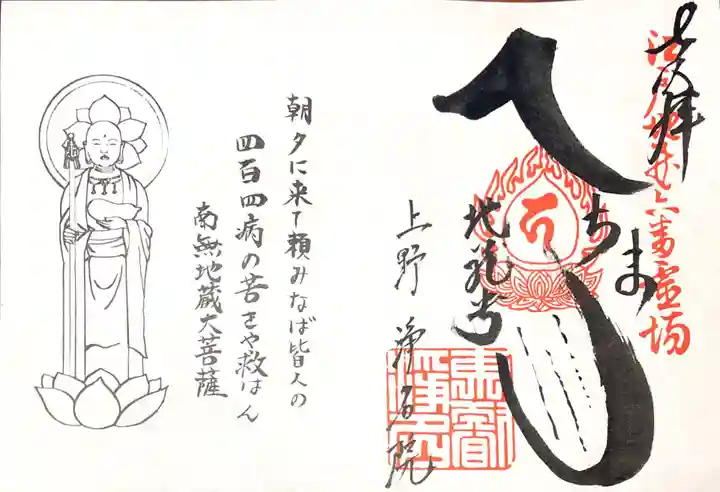 奉拝
江戸六地蔵六番霊場
へちま
地蔵尊
上野 浄名院
朝夕に来て頼みなば皆人の
四百四病の苦をや救はん
南無地蔵大菩薩